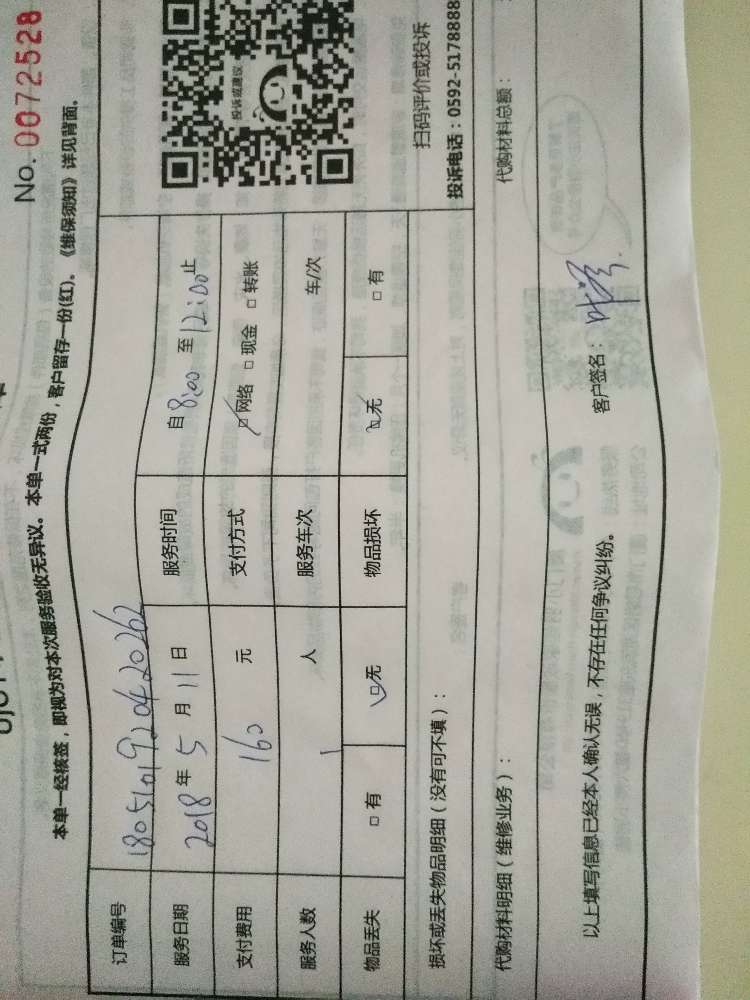 No. 0072528
本单一经核签，即视为对本次服务验收无异议。本单一式两份，客户留存一份(红)。《维保须知》详见背面。
订单编号 180510192042026
服务日期 2018 年 5 月 11 日 服务时间 自 8:00 至 12:00 止
支付费用 160 元 支付方式 □网络 □现金 □转账
服务人数 1 人 服务车次 车/次
物品丢失 □有 □无 物品损坏 □无 □有
投诉或建议
扫码评价或投诉
损坏或丢失物品明细（没有可不填）：
投诉电话：0592-5178888
代购材料明细（维修业务）：
代购材料总额：
以上填写信息已经本人确认无误，不存在任何争议纠纷。
客户签名：